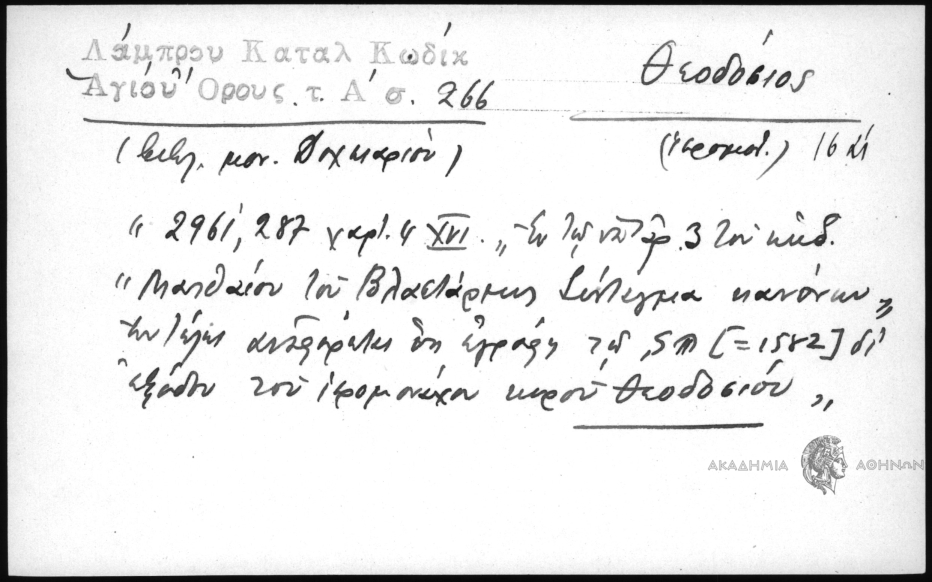 Λάμπρου Καταλ Κωδίκ
Ἁγίου Ὄρους. τ. Α' σ. 266
Θεοδόσιος
(βιβλ. μον. Δοχειαρίου)
(ἱερομον.)
" 2961, 287 χαρτ. 4 XVI. „ Ἐν τῷ 3 τοῦ κώδ.
" Ματθαίου τοῦ Βλαστάρεως Σύνταγμα κανόνων „
ἐν τέλει ἀναφέρεται ὅτι ἐγράφη τῷ [=1582] δι'
ἐξόδου τοῦ ἱερομονάχου κυροῦ Θεοδοσίου „
ΑΚΑΔΗΜΙΑ ΑΘΗΝΩΝ